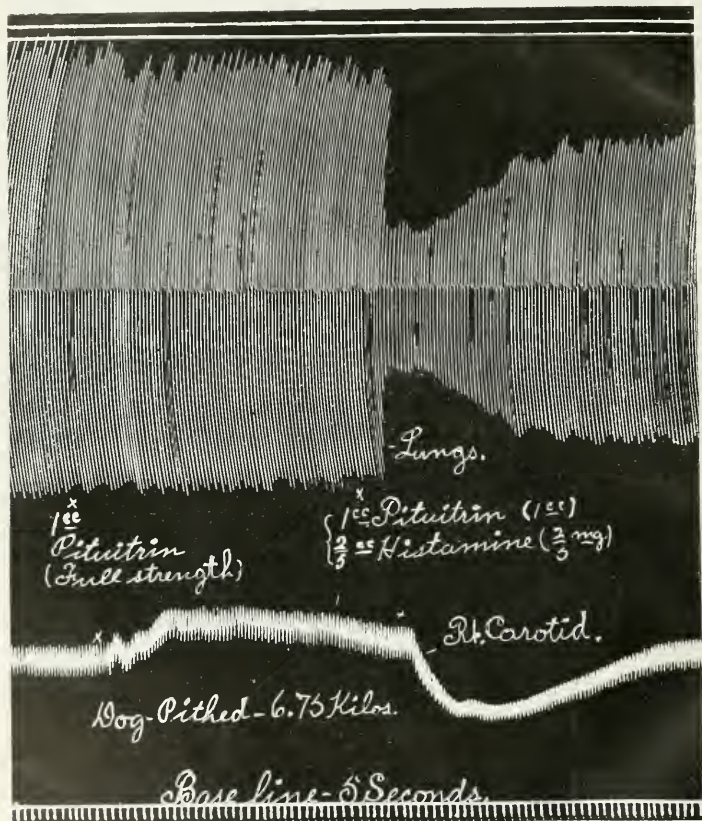 -Lungs.
x
1cc
Pituitrin
(Full strength)
x
{1cc Pituitrin (1cc)
{2/5 cc Histamine (2/5 mg)
x
x
Rt. Carotid.
Dog-Pithed-6.75 Kilos.
Base line-5 Seconds.